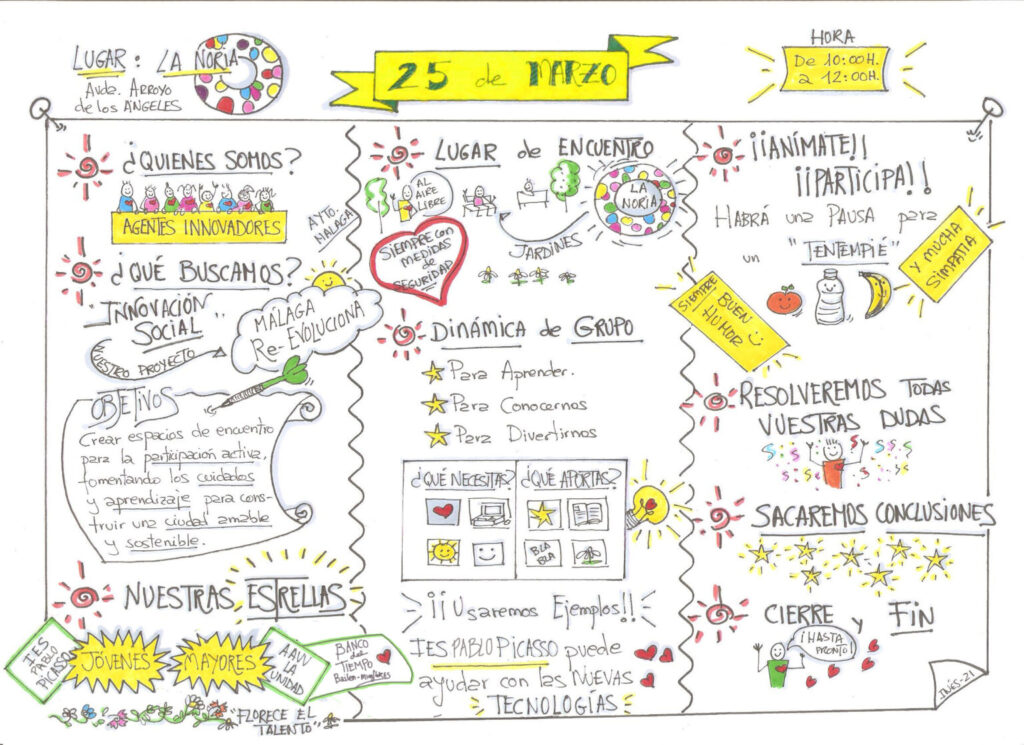 LUGAR: LA NORIA
Avde. ARROYO
de los ANGELES
25 de MARZO
HORA
De 10:00H.
a 12:00H.
¿QUIENES SOMOS?
AGENTES INNOVADORES
AYTO.
MALAGA
¿QUÉ BUSCAMOS?
"INNOVACIÓN
SOCIAL"
NUESTRO PROYECTO
MÁLAGA
Re-EVOLUCIONA
OBJETIVOS
Crear espacios de encuentro
para la participación activa,
fomentando los cuidados
y aprendizaje para cons-
truir una ciudad amable
y sostenible.
NUESTRAS ESTRELLAS
IES
PABLO
PICASSO
JÓVENES
MAYORES
AAVV
LA
UNIDAD
BANCO
del
TIEMPO
"FLORECE EL
TALENTO"
LUGAR de ENCUENTRO
AL
AIRE
LIBRE
LA
NORIA
JARDINES
SIEMPRE con
MEDIDAS
de
SEGURIDAD
DINÁMICA de GRUPO
Para Aprender.
Para Conocernos
Para Divertirnos
¿QUÉ NECESITAS?
¿QUÉ APORTAS?
BLA
BLA
¡¡Usaremos Ejemplos!!
IES PABLO PICASSO puede
ayudar con las NUEVAS
TECNOLOGÍAS
¡¡ANÍMATE!!
¡¡PARTICIPA!!
HABRÁ una PAUSA para
un "TENTEMPIÉ"
SIEMPRE BUEN
HUMOR
Y MUCHA
SIMPATÍA
RESOLVEREMOS TODAS
VUESTRAS DUDAS
SACAREMOS CONCLUSIONES
CIERRE y FIN
¡HASTA
PRONTO!
INÉS-21